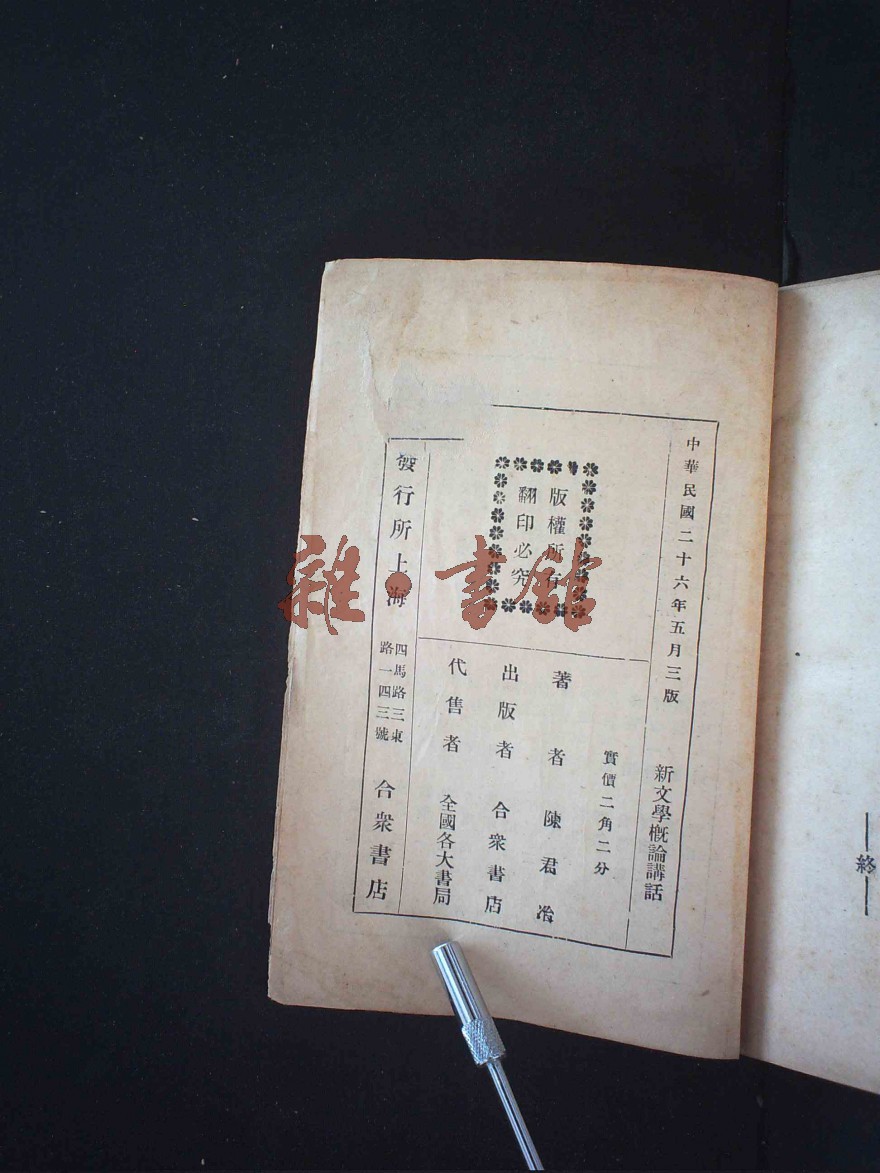 終
中華民國二十六年五月三版
新文學概論講話
實價二角二分
版權所有
翻印必究
著者 陳君冶
出版者 合衆書店
代售者 全國各大書局
發行所上海
四馬路三東
路一四三號
合衆書店
雜·書館